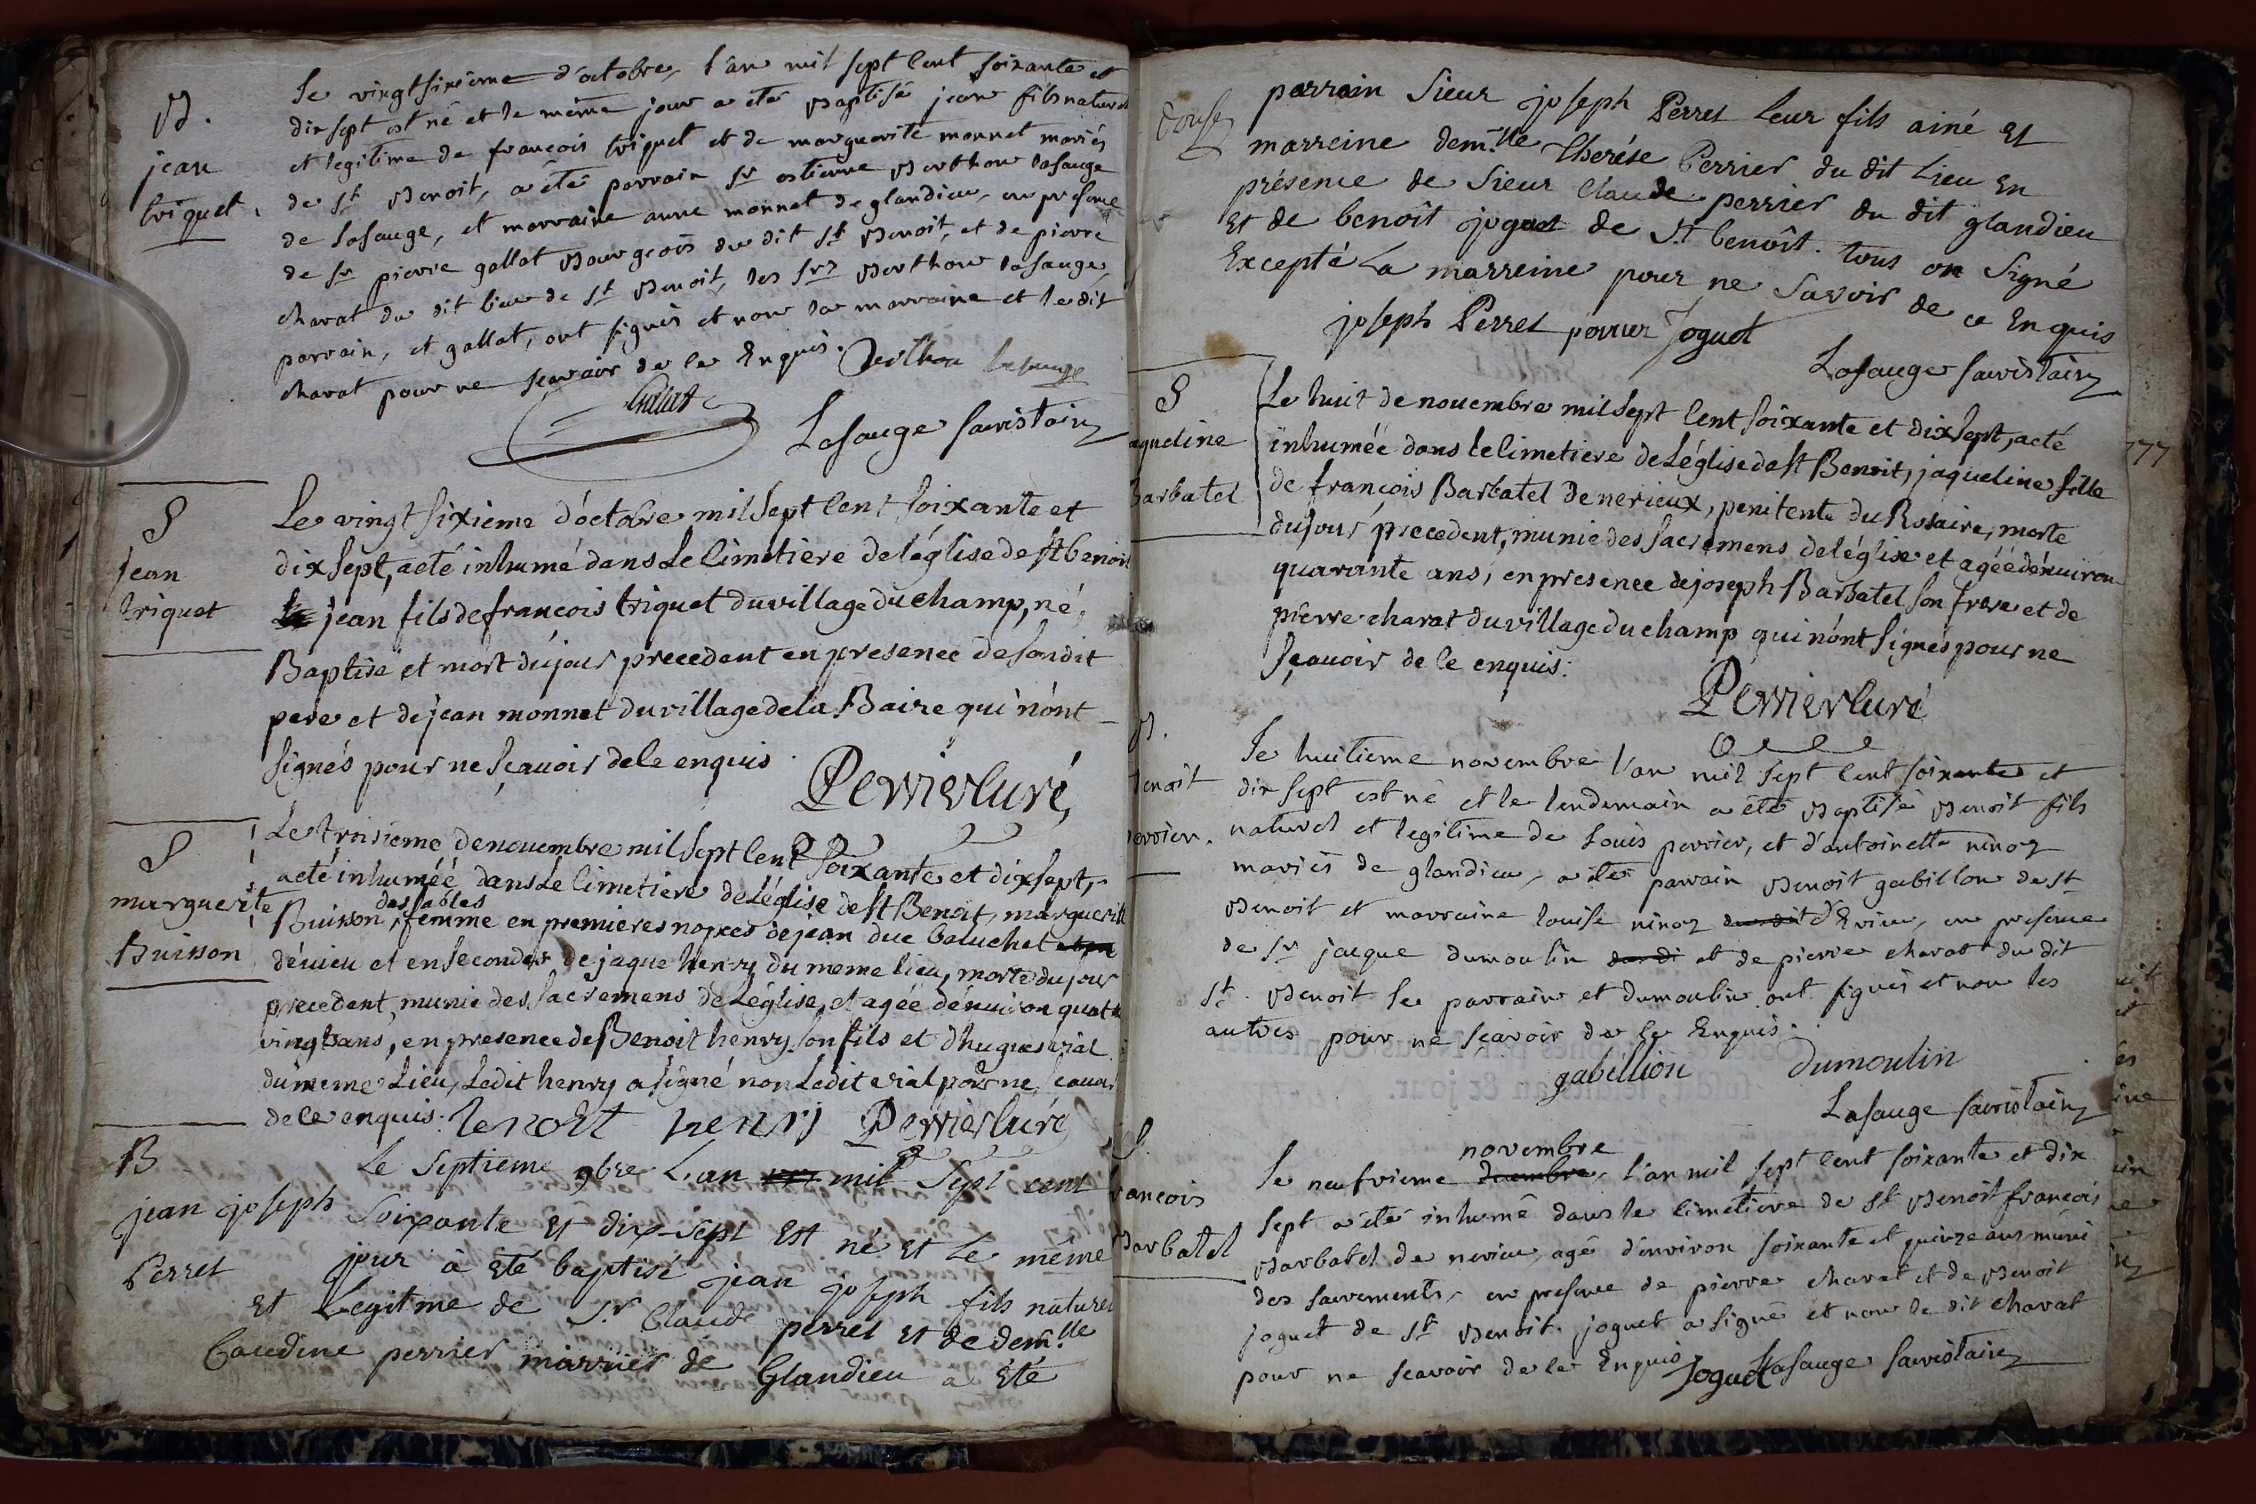 B.
jean
triquet.
Le vingt sixième d'octobre, l'an mil sept cent soixante et
dix sept est né et le même jour a été Baptisé jean fils naturel
et legitime de francois triquet et de marguerite monnet mariés
de St Benoit, a été parrain sr estienne Berthon Lasauge
de Lasauge, et marraine anne monnet de glandieu, en presence
de sr pierre gallat Bourgeois du dit St Benoit, et de pierre
charat du dit lieu de St Benoit, les srs Berthon Lasauge,
parrain, et gallat, ont signés et non la marraine et le dit
charat pour ne scavoir de ce Enquis. Berthon Lasauge
Gallat
Lasauge sacristain
S
Jean
triquet
Le vingt sixieme d'octobre mil sept cent soixante et
dix sept, a eté inhumé dans le cimetiere de l'église de St benoit
jean fils de francois triquet du village du champ, né,
Baptisé et mort du jour precedent en presence de son dit
pere et de jean monnet du village de la Baire qui n'ont
signés pour ne sçauoir de ce enquis
Perrier curé
S
marguerite
Buisson
Le troisieme de nouembre mil sept cent soixante et dix sept,
a eté inhumée dans le cimetiere de l'église de St Benoit, marguerite
des sables
Buisson, femme en premieres nopces de jean duc baluchet
d'éuieu et en secondes de jaque henry du meme lieu, morte du jour
precedent, munie des sacremens de l'église, et agée d'enuiron quatre
vingt ans, en presence de Benoit henry son fils et d'hugues erial
du meme Lieu, Ledit henry a signé non Ledit erial pour ne scauoir
de ce enquis. benoit henri Perrier curé
B
jean joseph
Perret
Le septieme 9bre L'an mil sept cent
soixante Et dix-sept Est né Et Le même
jour à Eté baptisé jean joseph fils naturel
Et Legitme de Sr Claude perret Et de demlle
Claudine perrier marriés de Glandieu a Eté
parrain Sieur joseph Perret Leur fils ainé Et
marreine demlle Therése Perrier du dit Lieu En
présence de Sieur Claude perrier du dit glandieu
Et de benoît joguet de St benoît. tous on Signé
Excepté La marreine pour ne Savoir de ce Enquis
joseph Perret perrier Joguet
Lasauge sacristain
S
jaqueline
Barbatel
Le huit de nouembre mil sept cent soixante et dix sept, a eté
inhumée dans le cimetiere de L'église de St Benoit, jaqueline fille
de françois Barbatel de nerieux, penitente du Rosaire, morte
du jour precedent, munie des sacremens de l'église et agée d'enuiron
quarante ans, en presence de joseph Barbatel son frere et de
pierre charat du village du champ qui n'ont signés pour ne
sçauoir de ce enquis.
Perrier curé
777
B.
Benoit
perrier.
Le huitieme novembre l'an mil sept cent soixante et
dix sept est né et le lendemain a été Baptisé Benoit fils
naturel et legitime de Louis perrier, et d'antoinette ninoz
mariés de glandieu, a été parrain Benoit gabillon de St
Benoit et marraine louise ninoz d'Evieu, en presence
de sr jacque dumoulin et de pierre charat du dit
St. Benoit le parrain et dumoulin ont signés et non les
autres pour ne sçavoir de ce Enquis.
gabillion dumoulin
Lasauge sacristain
S.
francois
Barbatel
novembre
Le neufvieme l'an mil sept cent soixante et dix
sept a été inhumé dans le cimetiere de St Benoit francois
Barbatel de nerieu, agé d'environ soixante et quinze ans muni
des sacrements, en presence de pierre charat et de Benoit
joguet de St Benoit. joguet a signé et non le dit charat
pour ne scavoir de ce Enquis Joguet Lasauge sacristain